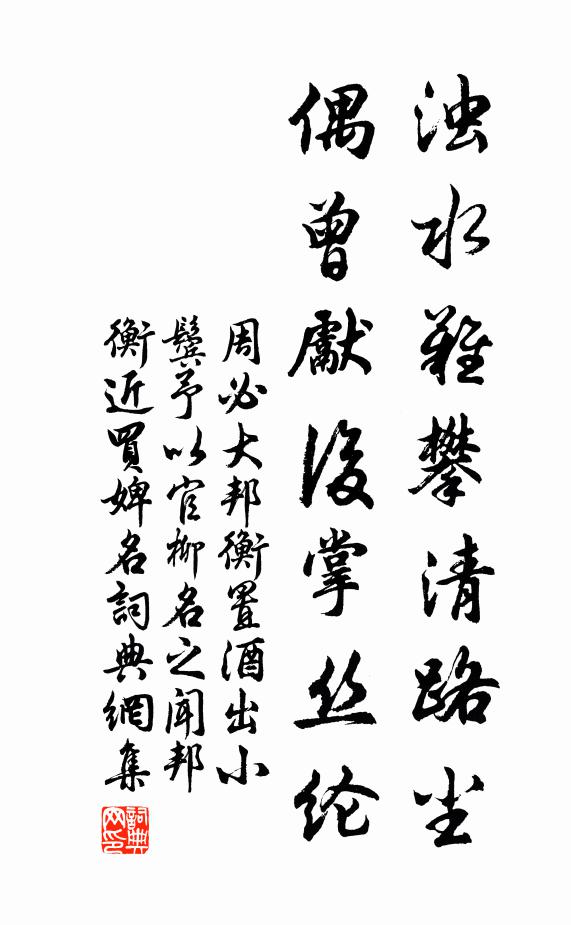 浊水难攀清路尘
偶曾獻后掌丝纶
周必大邦衡置酒出小
鬟予以官柳名之闻邦
衡近買婢名詞典網集
詞典网印